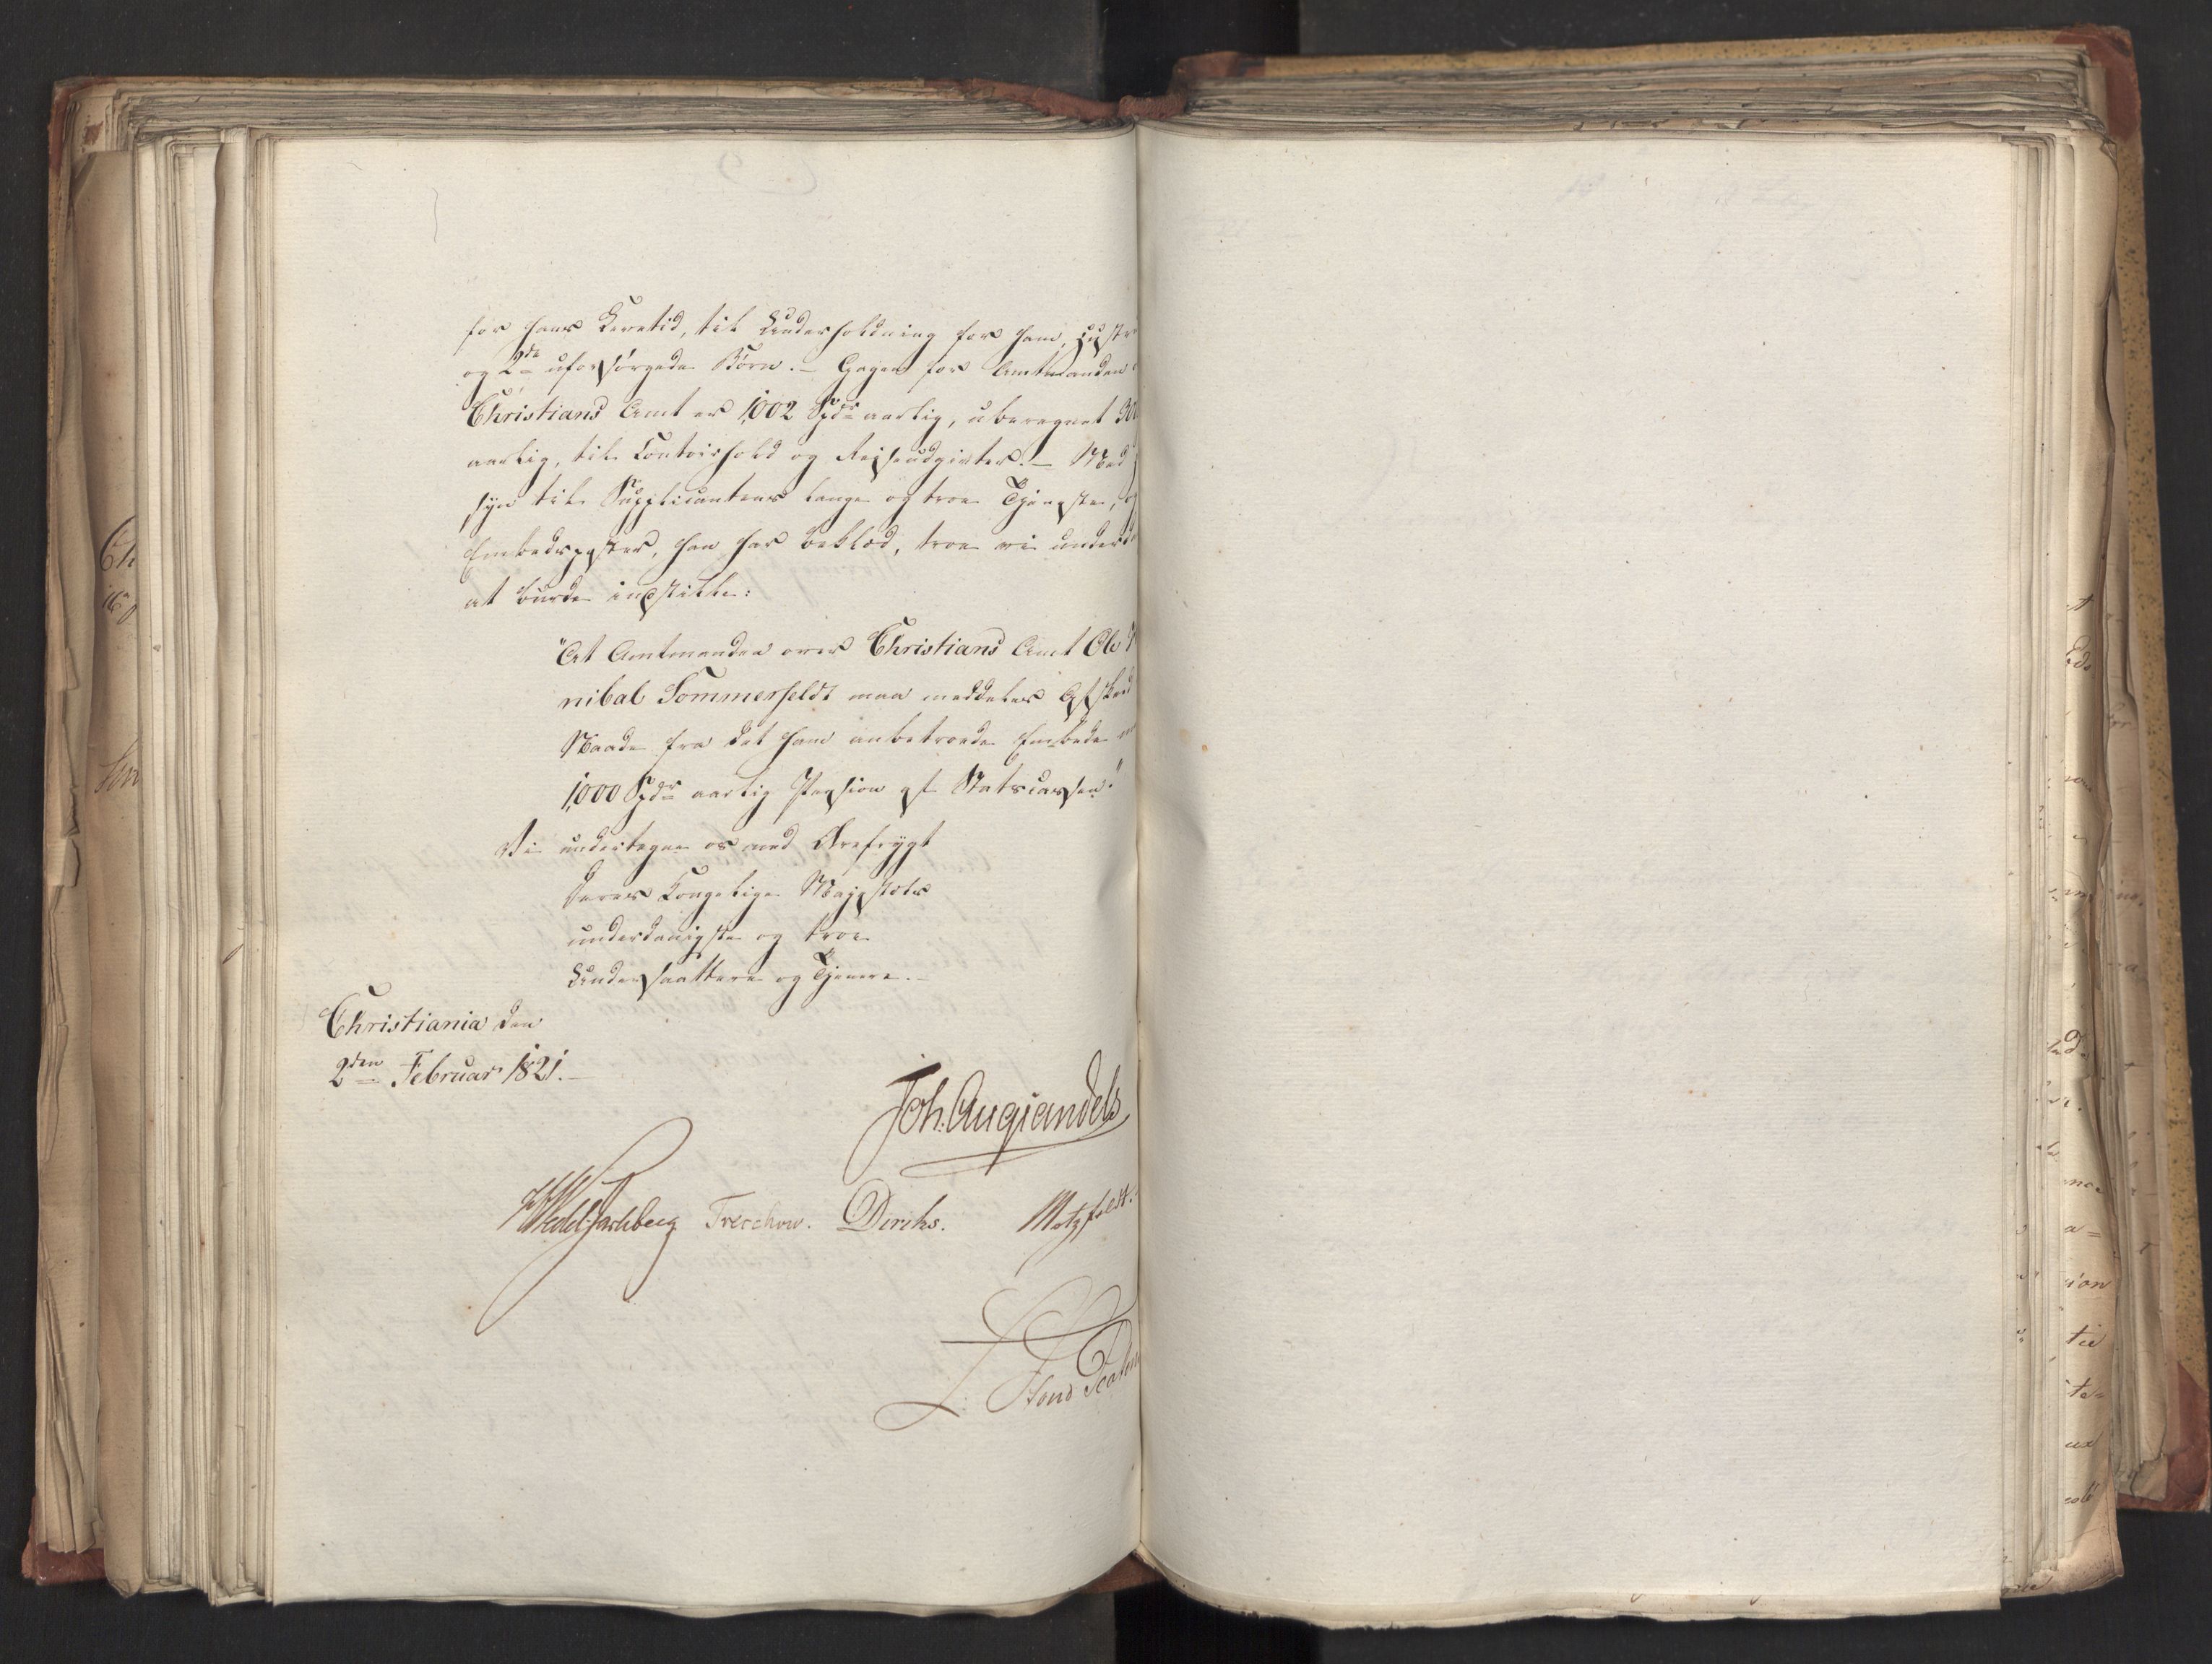 for hans Levetid, til Underholdning for ham, Hustr
og 2de uforsørgede Børn. – Gagen for Amtmanden
Christians Amt er 1,002 Spdr aarlig, uberegnet 300
aarlig, til Contoirhold og Reiseudgivter. – Med
syn til Supplicantens lange og troe Tjeneste, og
Embedsposter, han har beklæd, troe vi underd
at burde indstille:
"At Amtmanden over Christians Amt Ole H
nibal Sommerfeldt maa meddeles Afskeed
Naade fra det ham anbetroede Embede m
1,000 Spdr aarlig Pension af Statscassen."
Vi undertegne os med Ærefrygt
Deres Kongelige Majestæts
underdanigste og troe
Undersaattere og Tjenere. –
Christiania den
2den Februar 1821. –
Joh. Aug. Sandels
Wedel Jarlsberg Treschow. Diriks. Motzfeldt.